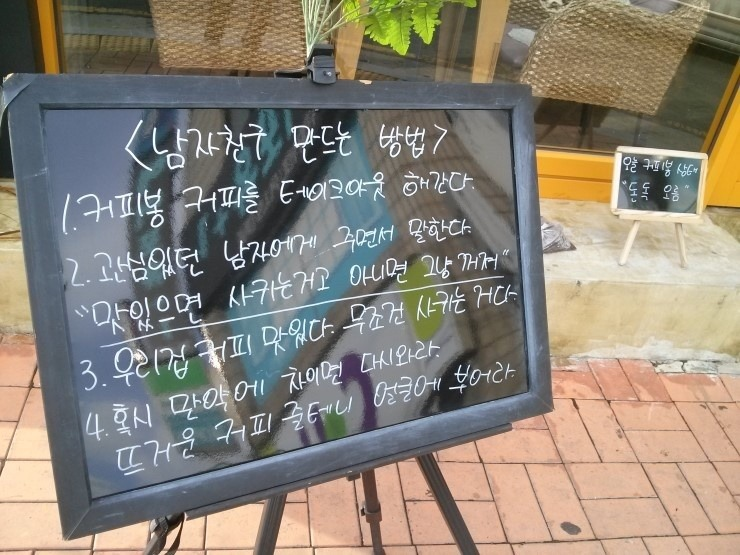 <남자친구 만드는 방법>
1. 커피봉 커피를 테이크아웃 해간다.
2. 관심있던 남자에게 주면서 말한다.
"맛있으면 사귀는거고 아니면 그냥 꺼져"
3. 우리집 커피 맛있다. 무조건 사귀는 거다.
4. 혹시 만약에 차이면 다시와라.
뜨거운 커피 줄테니 얼굴에 부어라.
오늘 커피봉 상태
"돈독 오름"